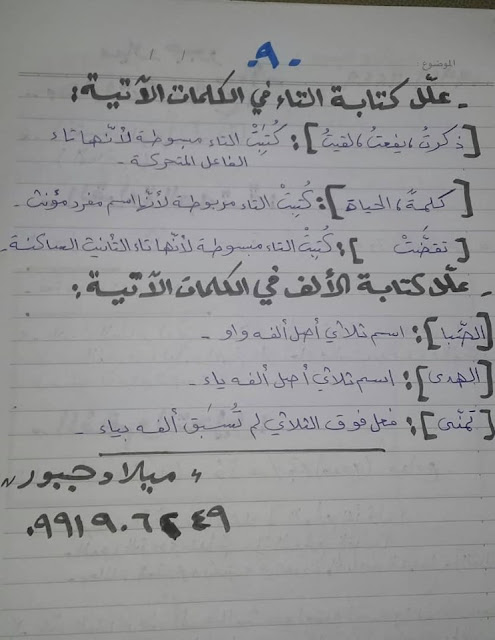 الموضوع
-٩-
- علّل كتابة التاء في الكلمات الآتية:
[ذكرتُ، يفعتُ، لقيتُ]: كُتِبَتْ التاء مبسوطة لأنّها تاء
الفاعل المتحركة.
[كلمةً، الحياة]: كُتِبَتْ التاء مربوطة لأنّها اسم مفرد مؤنث.
[تقضَّتْ]: كُتِبَتْ التاء مبسوطة لأنّها تاء التأنيث الساكنة.
- علّل كتابة الألف في الكلمات الآتية:
[الصِّبا]: اسم ثلاثي أصل ألفه واو.
[الهدى]: اسم ثلاثي أصل ألفه ياء.
[تمنّى]: فعل فوق الثلاثي لم تُسبَق ألفه بياء.
" ميلاد جبور "
٠٩٩١٩٠٦٤٤٩